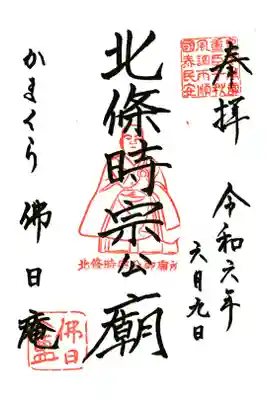 奉拝
令和六年
六月九日
北條時宗公廟
北條時宗公御廟所
かまくら 佛日庵
佛日